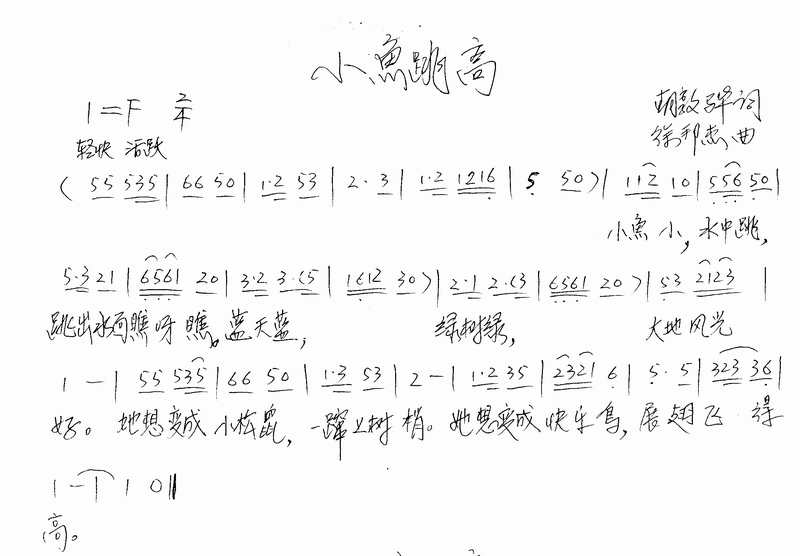 小魚跳高
1=F 2/4
胡敦骅词
轻快 活跃
徐邦杰曲
( 55 535 | 66 50 | 1·2 53 | 2· 3 | 1·2 1216 | 5 50 ) | 112 10 | 556 50 |
小魚小,水中跳,
5·321 | 6561 20 | 3·2 3·(5 | 1612 30 ) | 2·1 2·(3 | 6561 20 ) | 53 2123 |
跳出水面瞧呀瞧。蓝天蓝, 绿树绿, 大地风光
1 – | 55 535 | 66 50 | 1·3 53 | 2 – | 1·2 35 | 2321 6 | 5· 5 | 323 36 |
好。她想变成小松鼠,一蹿上树梢。她想变成快乐鸟,展翅飞 得
1 – | 1 0 ‖
高。